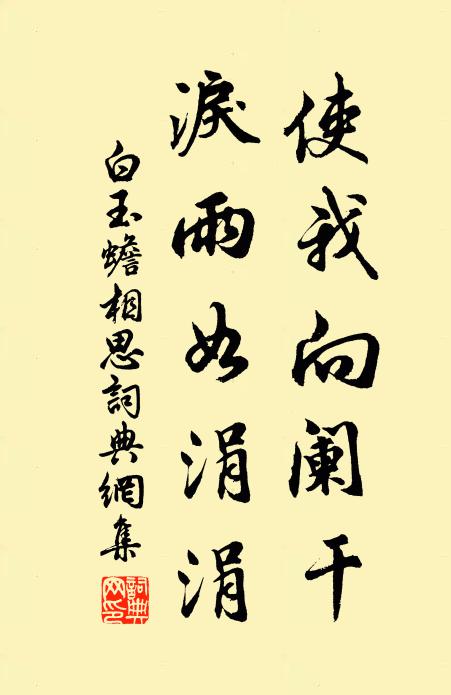 使我向阑干
淚雨如涓涓
白玉蟾相思詞典網集
詞典網印